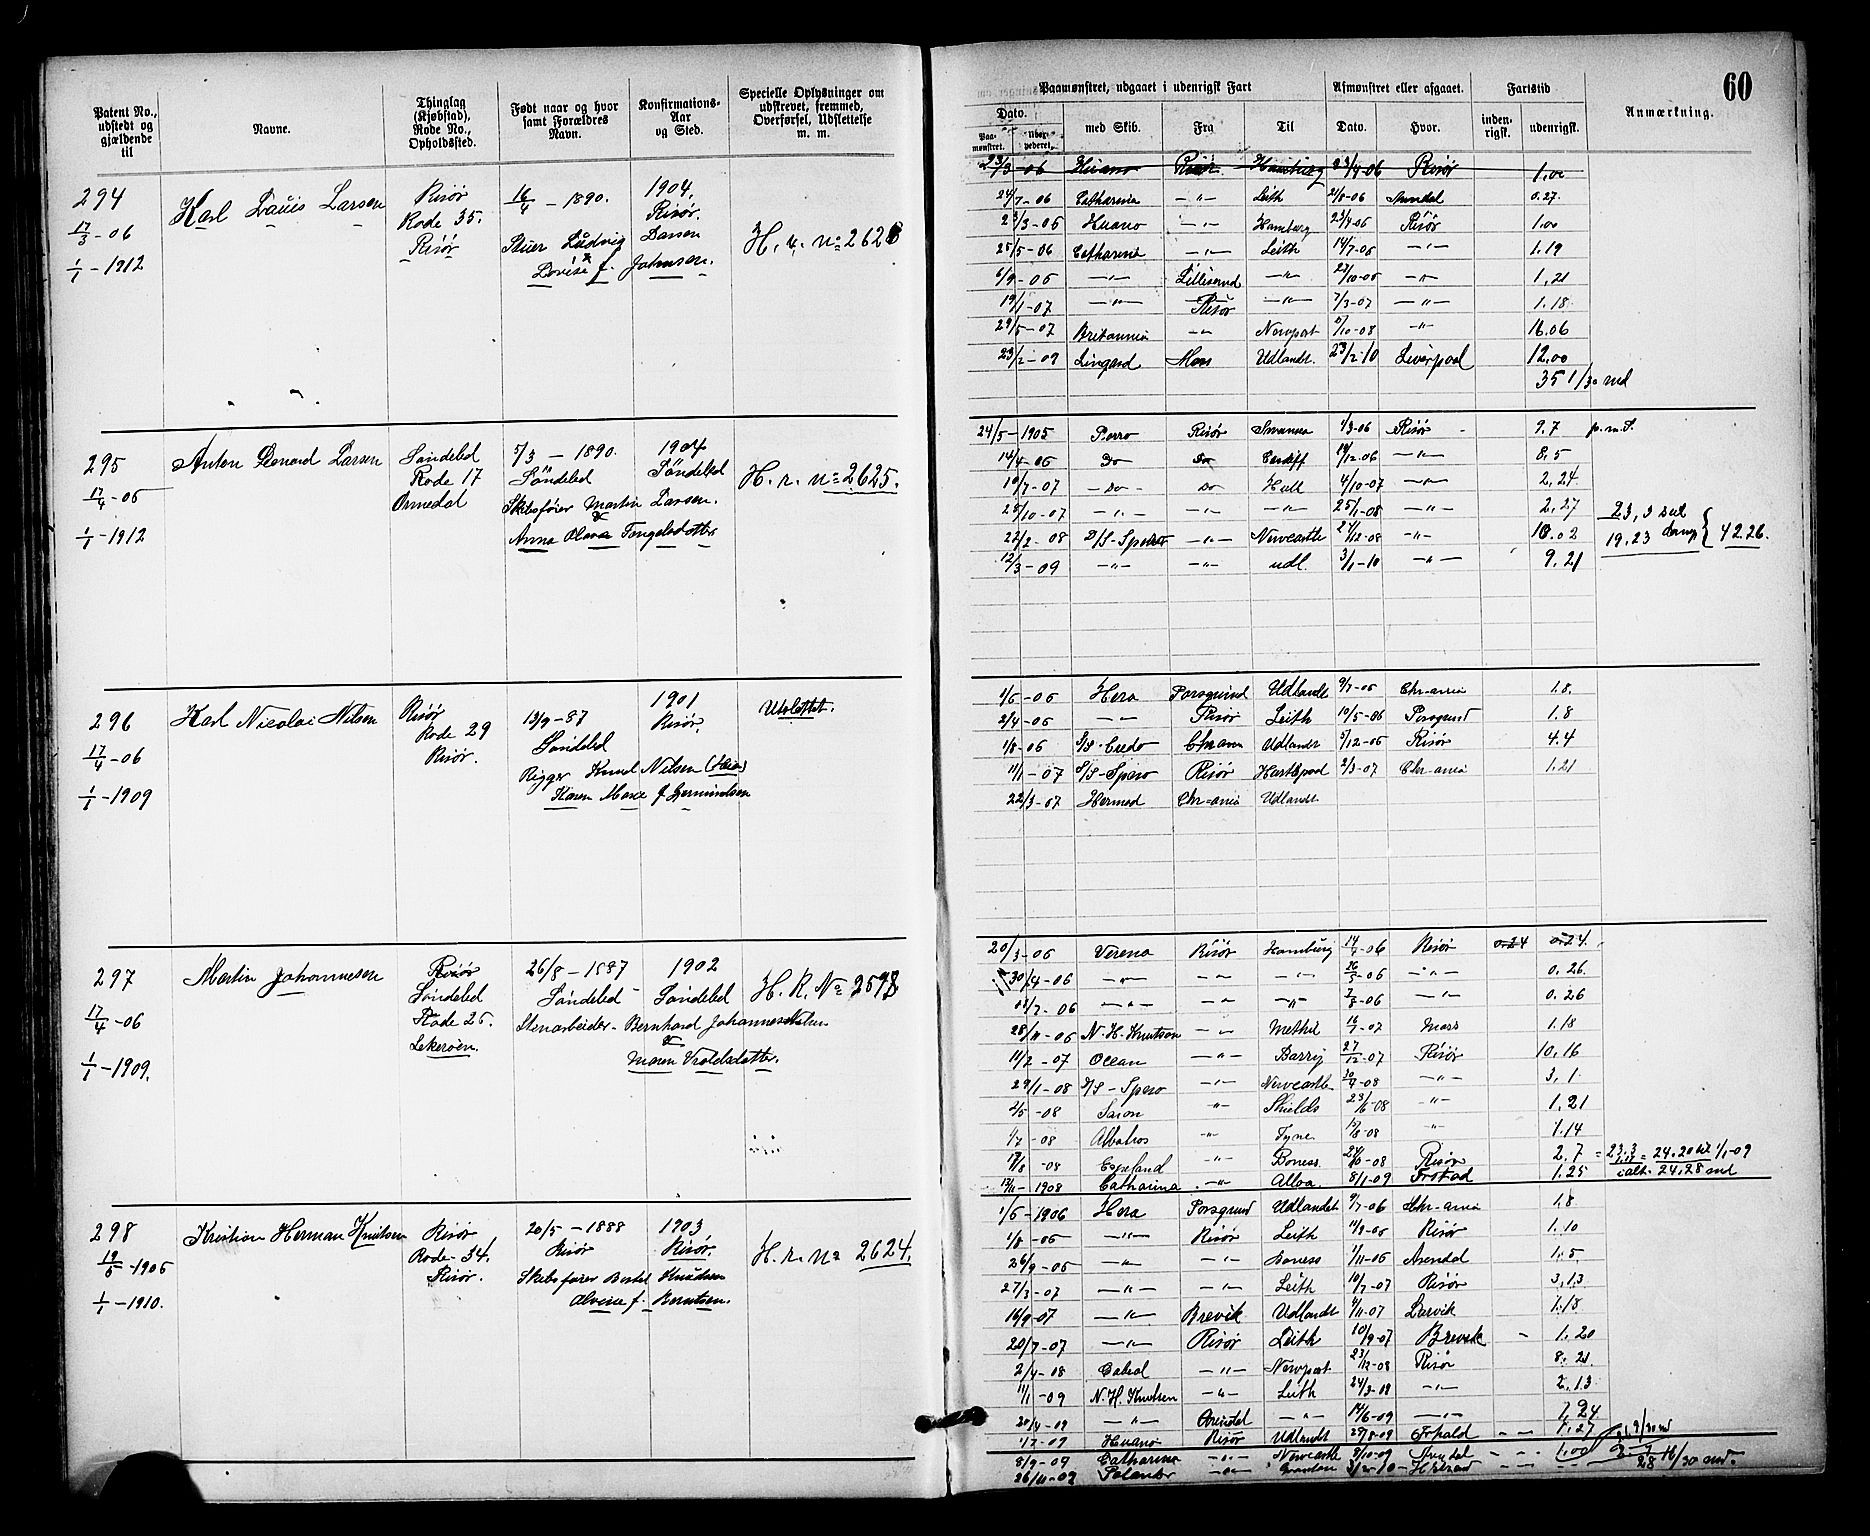 60
Patent No., udstedt og gjældende til
Navne.
Thinglag (Kjøbstad), Rode No., Opholdssted.
Født naar og hvor samt Forældres Navn.
Konfirmations-Aar og Sted.
Specielle Oplysninger om udskrevet, fremmed, Overførsel, Udslettelse m. m.
Paamønstret, udgaaet i udenrigsk Fart
Afmønstret eller afgaaet.
Fartstid
Anmærkning.
Dato.
med Skib.
Fra
Til
Dato.
Hvor.
inden-rigsk.
udenrigsk.
294
17/3-06
1/1-1912
Karl Louis Larsen
Risør
Rode 35.
Risør
16/4 - 1890.
Stuer Ludvig Larsen
Lovise f. Johnsen.
1904.
Risør.
H. r. No 2626
23/3-06 Huano Risør Hamburg 23/4-06 Risør 1.00
24/7-06 Catharina -"- Leith 21/8-06 Arendal 0.27.
23/3-06 Huano -"- Hamburg 23/4-06 Risør 1.00
25/5-06 Catharina -"- Leith 14/7-06 -"- 1.19
6/9-06 -"- Lillesand -"- 27/10-06 -"- 1.21
19/1-07 -"- Risør -"- 7/3-07 -"- 1.18
29/5-07 Britannia -"- Newport 5/10-08 -"- 16.06
23/2-09 Lingard Moss Udlandt. 23/2-10 Liverpool 12.00
35 1/30 md
295
17/4-06
1/1-1912
Anton Lenard Larsen
Søndeled
Rode 17
Ormedal
5/3 - 1890.
Søndeled
Skibsfører Martin Larsen.
Anna Olava Tengelsdatter
1904
Søndeled
H. r. No 2625.
24/5-1905 Porro Risør Swansea 1/3-06 Risør 9.7 p.m.S.
14/4-06 Do Do Cardiff 19/12-06 -"- 8.5
10/7-07 -Do- Do Hull 4/10-07 -"- 2,24
28/10-07 -"- -"- -"- 25/1-08 -"- 2.27
22/2-08 D/S-Spero -"- Newcastle 24/12-08 -"- 10.02
12/3-09 -"- -"- udl. 3/1-10 -"- 9.21
23,3 seil
19.23 damp } 42.26.
296
17/4-06
1/1-1909
Karl Nicolai Nilsen
Risør
Rode 29
Risør.
13/9-87
Søndeled
Rigger Knud Nilsen (Heia)
Karen Marie f. Germundsen
1901
Risør.
Udslettet.
1/6-06 Hera Porsgrund Udlandt 9/7-06 Chr-ania 1.8.
2/4-06 -"- Risør Leith 10/5-06 Porsgrund 1.8
1/8-06 S/S-Credo Chrania Udlandt 5/12-06 Risør 4.4
11/1-07 S/S-Spero Risør Hartlepool 2/3-07 Chr-ania 1.21
22/3-07 Hermod Chr-ania Udlandt
297
17/4-06
1/1-1909.
Martin Johannesen
Risør
Søndeled
Rode 25.
Lekerøen.
26/8-1887
Søndeled
Stenarbeider Bernhard Johannessen
Maren Vroldsdatter.
1902
Søndeled
H. R. No 2598
20/3-06 Verena Risør Hamburg 14/4-06 Risør 0.24 0.24.
30/4-06 -"- -"- -"- 26/5-06 -"- 0.26.
-"- -"- -"- -"- 0.26
28/11-06 N. H. Knutson -"- Methil 16/1-07 Moss 1.18
11/2-07 Ocean -"- Barry 27/12-07 Risør 10,16
29/1-08 D/S-Spero -"- Newcastle 30/4-08 -"- 3,1
2/5-08 Saron -"- Shields 23/6-08 -"- 1,21
1/7-08 Albatros -"- Tyne 15/8-08 -"- 1.14
17/8-08 Egeland -"- Boness Risør 2.7
12/11-1908 Catharina -"- Alloa. 8/1-09 1.25
= 24.20 til 1/1-09
ialt. 24.28 md
298
19/5-1906
1/1-1910.
Kristian Herman Knutsen
Risør
Rode-34.
Risør.
20/5-1888
Risør
Skibsfører Bertel Knudsen
Alvine f. Berntsen.
1903
Risør.
H. r. No 2624.
1/6-1906 Hera Porsgrund Udlandet 9/7-06 Chr-ania 1.8
1/8-06 -"- Risør Leith 11/9-06 Risør 1.10
26/9-06 -"- -"- Boness 1/11-06 Arendal 1.5
27/3-07 -"- -"- Leith 10/7-07 Risør 3.13
16/9-07 -"- Brevik Udlandt 4/11-07 Larvik 1.18
20/7-07 -"- Risør Leith 10/9-07 Brevik 1.20
2/4-08 -"- Newport 23/12-08 Risør 8.21
11/1-09 N. H. Knutsen -"- Leith 24/3-09 -"- 2.13
20/4-09 -"- Arendal -"- 14/6-09 -"- 1.24
1/7-09 Huano Risør Udlandt 27/8-09 1.27
8/9-09 Catharina -"- Newcastle 8/10-09 Arendal 1.00
26/11-09 -"-
28 16/30 md.